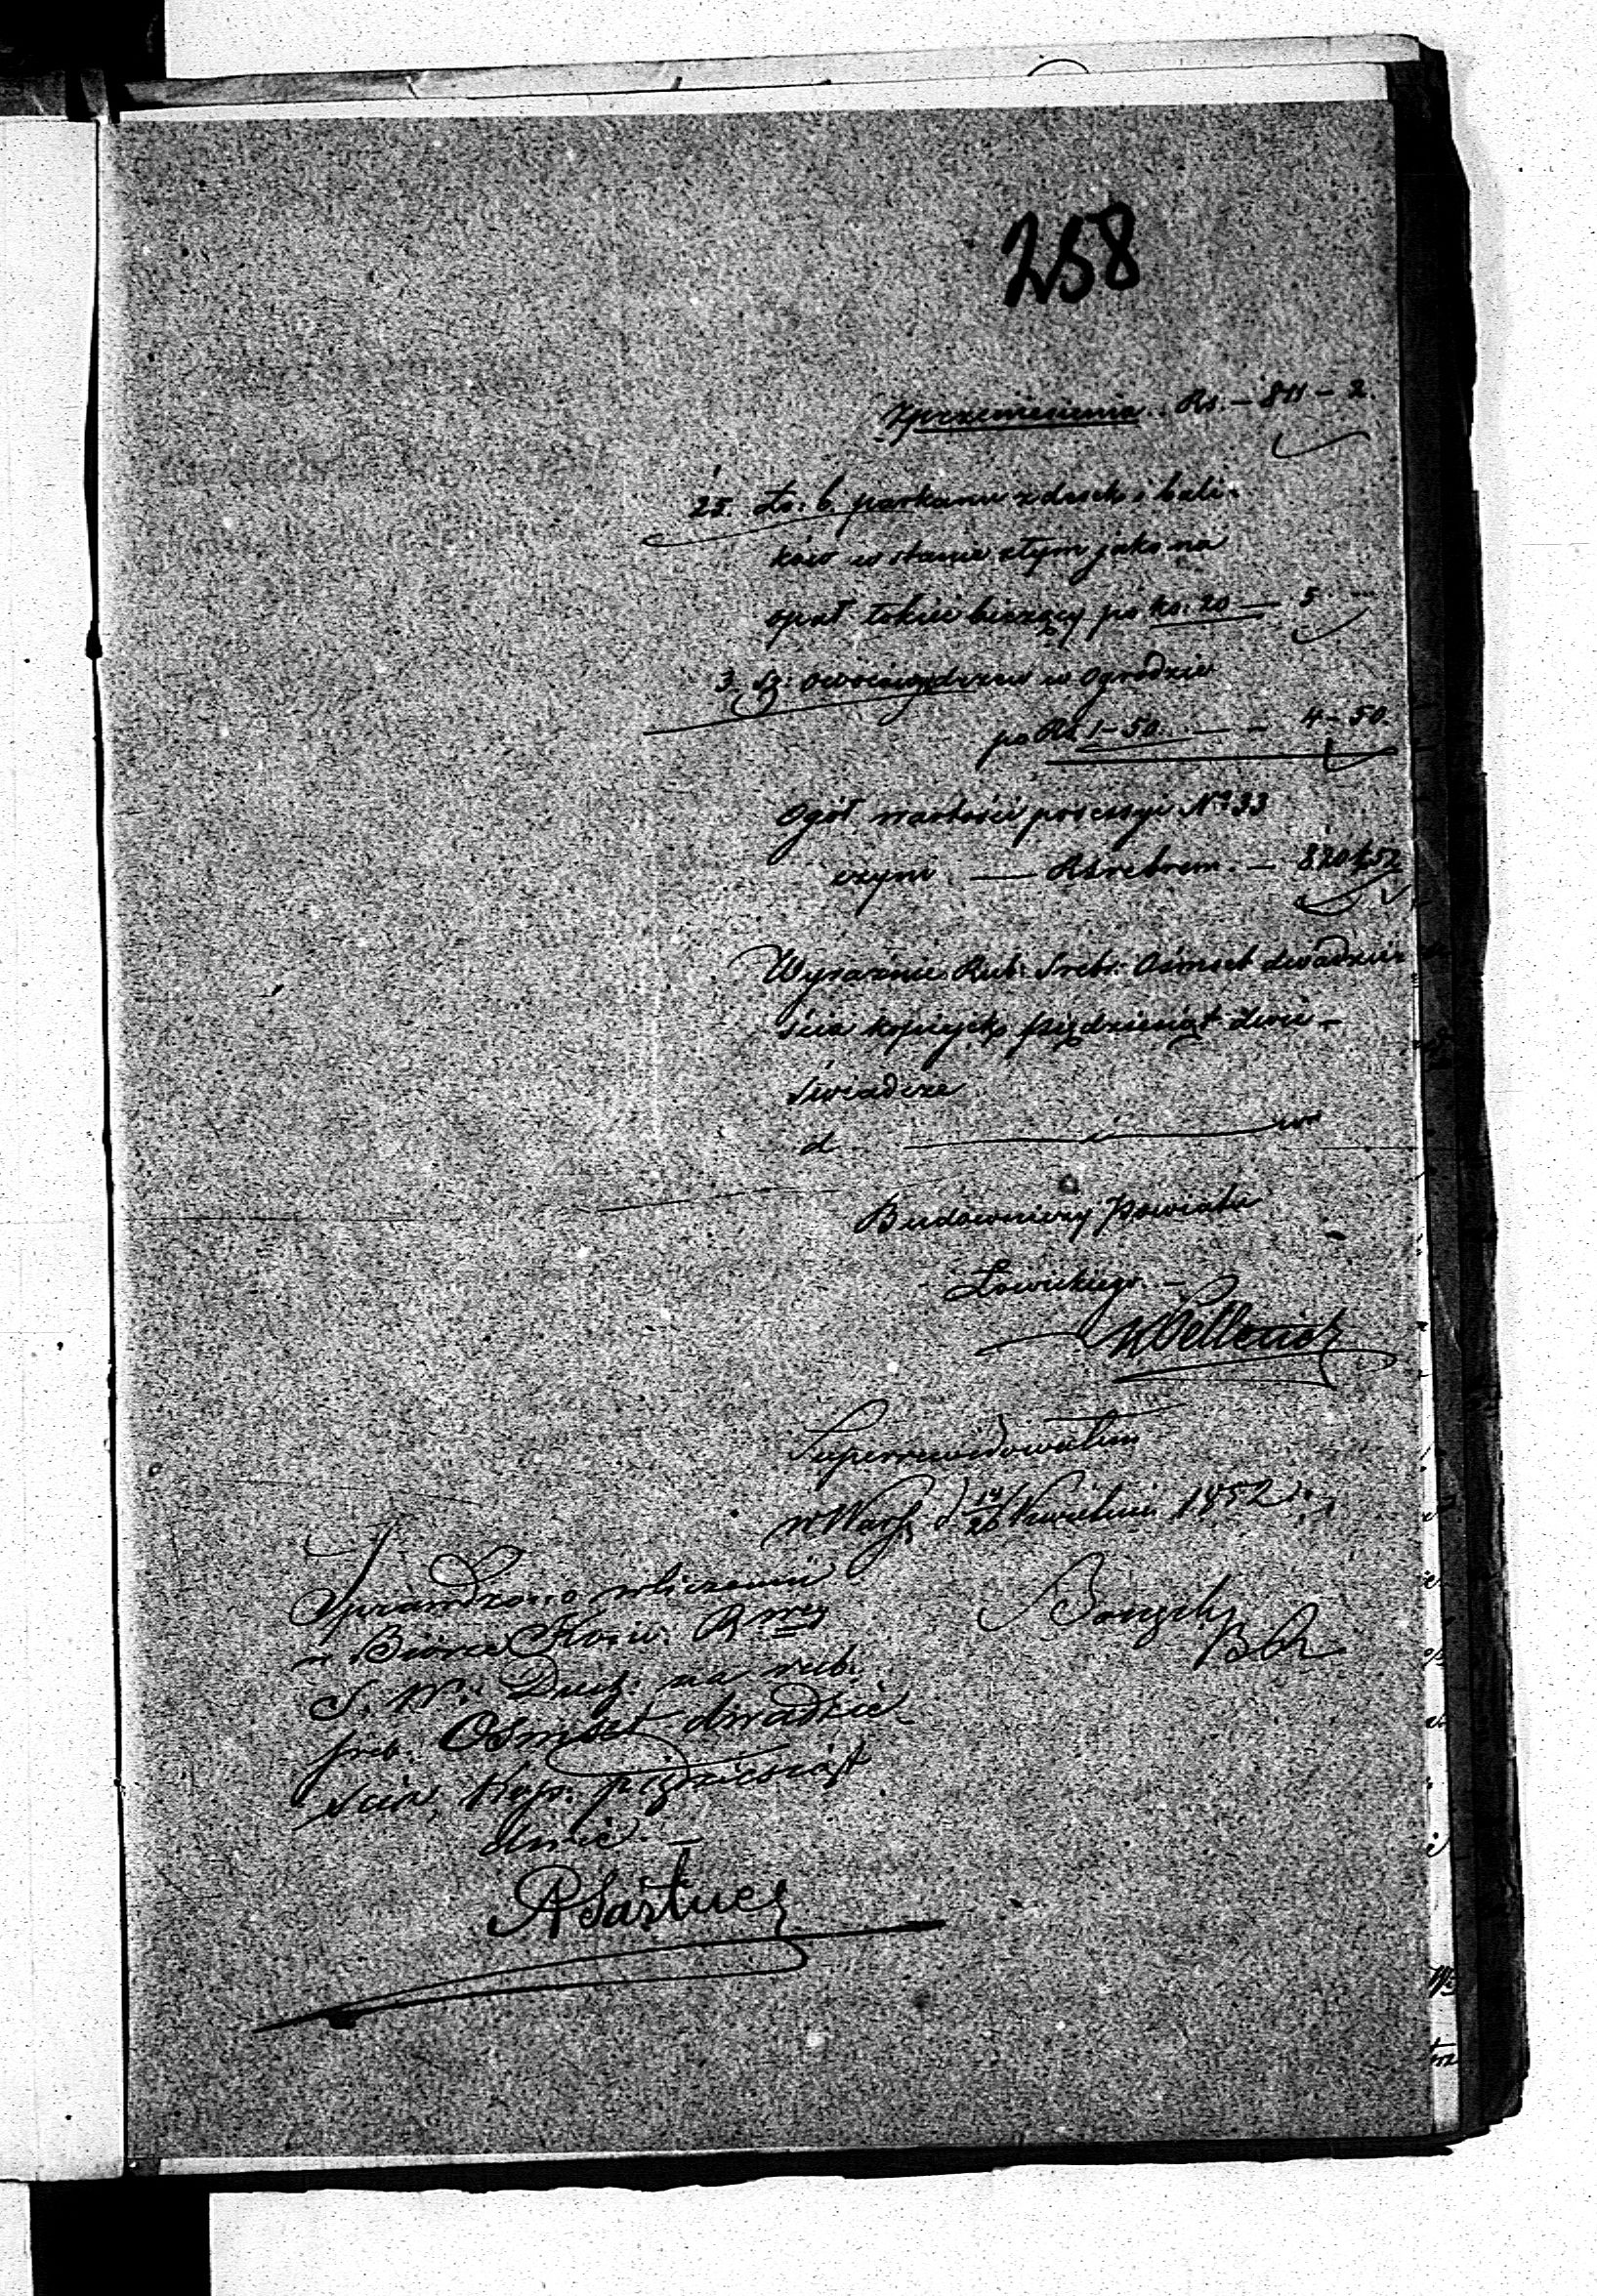 258
Z przeniesienia .. Rs. — 811 — 2.
25. Ło: b. parkanu z desek i bali-
ków w stanie złym jako na
opał łokieć bieżący po ko: 20 — 5 "
3. Sz: owocowych drzew w Ogrodzie
po Rs 1-50. — — 4-50.
Ogół wartości possessyi No 33
czyni — Rsrebrem. — 820 k 52
Wyraźnie Rub: Srebr: Ośmset dwadzie-
ścia kopiejek pięćdziesiąt dwie —
świadczę
d
Budowniczy Powiatu
Łowickiego. —
Superrewidowałem
w Warsz. d 14/26 Kwietnia 1852 r.
Sprawdzono w liczeniu
w Biórze
S. W. i Duch: na rub:
sreb: Ośmset dwadzie-
ścia, Kop: pięćdziesiąt
dwie. —